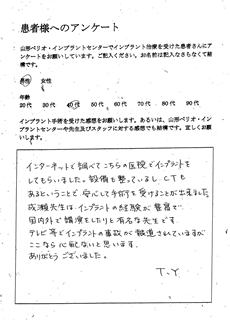 患者様へのアンケート
山形ペリオ・インプラントセンターでインプラント治療を受けた患者さんにア
ンケートをお願いしています。ご記入ください。お名前は記入なさらなくても結
構です。
男性　女性
年齢
20代　30代　40代　50代　60代　70代　80代　90代
インプラント手術を受けた感想をお願いします。あるいは、山形ペリオ・イン
プラントセンターや先生及びスタッフに対する感想でも結構です。宜しくお願
いします。
インターネットで調べてこちらの医院でインプラントを
してもらいました。設備も整っているし CTも
あるということで、安心して手術を受けることが出来ました
成瀬先生は、インプラントの経験が豊富で
国内外で講演をしたりと有名な先生です。
テレビ等でインプラントの事故が報道されていますが
ここなら心配ないと思います。
ありがとうございました。
T.Y